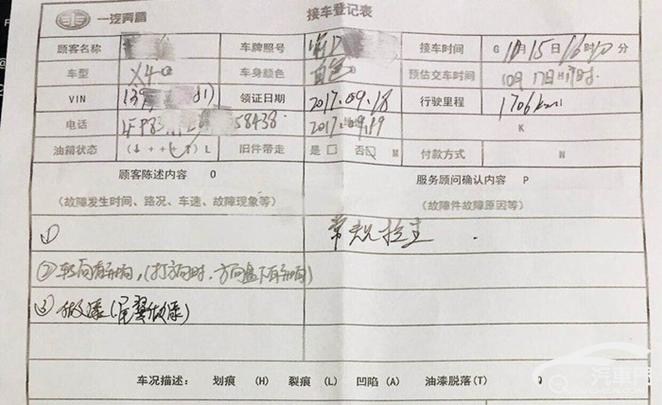 一汽奔腾 接车登记表
顾客名称 车牌照号 接车时间 G 10月15日16时10分
车型 X40 车身颜色 白色 预估交车时间 10月17日17时
VIN 139 01) 领证日期 2017.09.18 行驶里程 1706km
电话 LFP83 58438 2017.09.19 K
油箱状态 (↓ + + + ↑) L 旧件带走 是□ 否□ M 付款方式 N
顾客陈述内容 O 服务顾问确认内容 P
(故障发生时间、路况、车速、故障现象等) (故障件故障原因等)
① 常规检查
②转向有异响,(打方向时.方向盘下有异响)
③ 做漆(尾翼做漆)
车况描述: 划痕 (H) 裂痕 (L) 凹陷 (A) 油漆脱落(T) Q